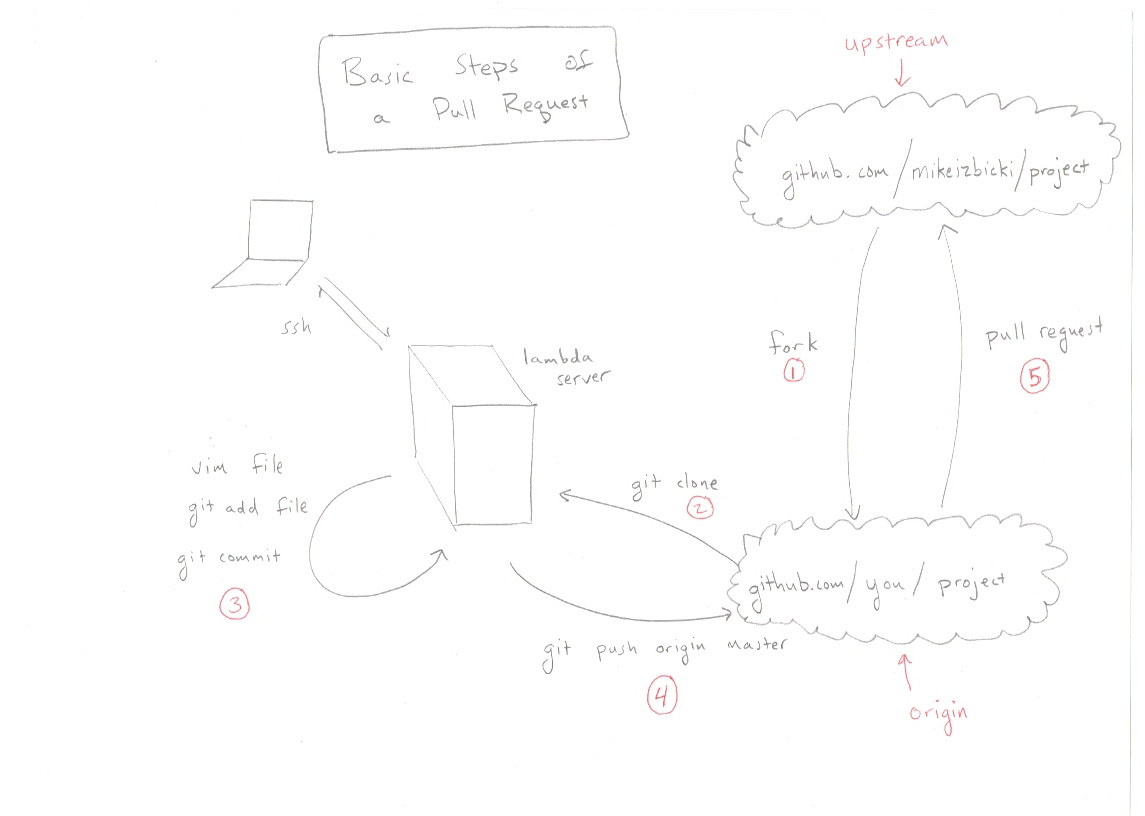 Basic Steps of
a Pull Request
upstream
github.com/mikeizbicki/project
ssh
lambda
server
fork
1
pull request
5
vim file
git add file
git commit
3
git clone
2
github.com/you/project
git push origin master
4
origin